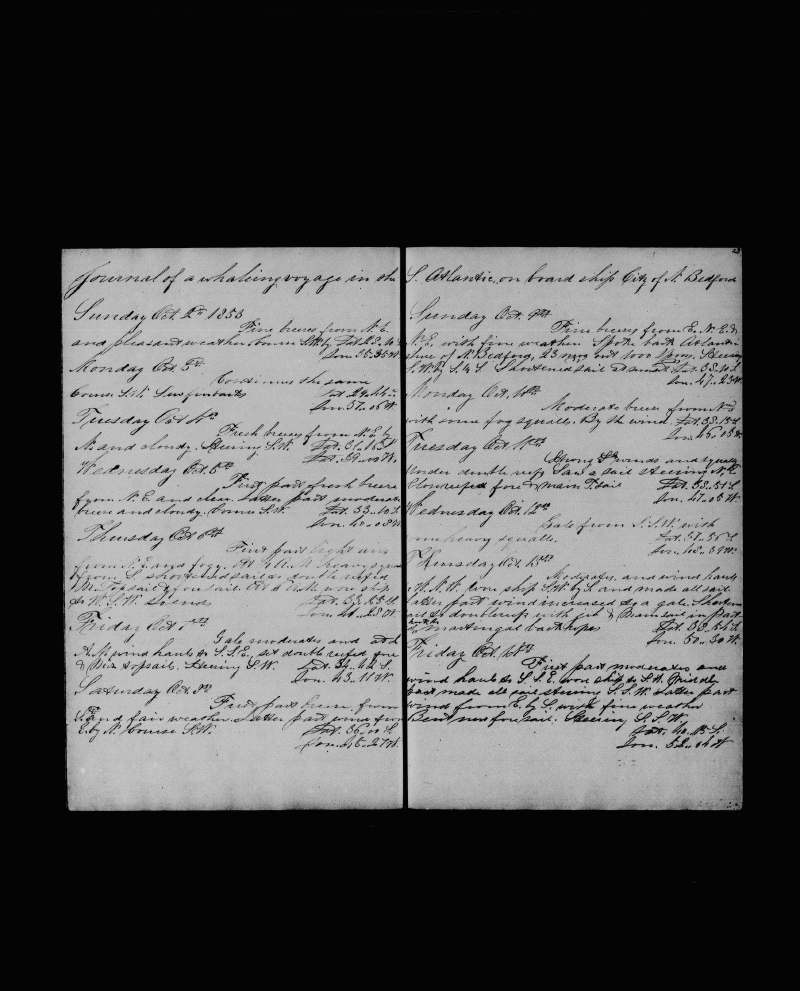 Journal of a whaling voyage in the
Sunday Oct. 2nd 1853
Fine breeze from N.E.
and pleasant weather Course S.W. by
Lon. 35.35 W.
Monday Oct 3rd
Continues the same
Course S.W. Saw finbacks Lat. 29..44 S.
Lon. 37..06 W
Tuesday Oct 4th
Fresh breeze from N.E. by
N. and cloudy. Steering S.W. Lat. 31..16 S
Lon. 39..00 W.
Wednesday Oct. 5th
First part fresh breeze
from N.E. and clear. Latter part moderate
breeze and cloudy. Course S.W. Lat. 33..10 S.
Lon. 40..08 W
Thursday Oct 6th
First part light airs
from N.E. and foggy. At 4 A.M. heavy squall
from S. shortened sail to double reefed
M. Topsail & fore sail. At 6 A.M. wore ship
to W.S.W.
Lon. 41..28 W
Friday Oct 7th
Gale moderates and at
A.M. wind hauls to S.S.E., set double reefed fore
& Miz topsail. Steering S.W. Lat. 34..42 S.
Lon. 43..11 W.
Saturday Oct. 8th
First part breeze from
and fair weather. Latter part wind from
E. by N. Course S.W. Lat. 36..
Lon. 45..27 W.
23
S. Atlantic, on board ship City of N. Bedford
Sunday Oct. 9th
Fine breeze from E.N.E. &
N.E. with fine weather Spoke bark Atlantic
of N. Bedford, 23 mos out 1000 Sperm. Steering
S.W. by S. & S. Shortened sail at sunset Lat. 38..10 S.
Lon. 47..23 W.
Monday Oct. 10th
Moderate breeze from N'd
with some fog squalls. By the wind. Lat. 38..15 S.
Lon. 46..05 W.
Tuesday Oct 11th
Strong winds and squally
Under double reefs Saw a sail steering N.E.
Close reefed fore & main T.sail Lat. 38..51 S
Lon. 47..05 W.
Wednesday Oct. 12th
Gale from N.N.W. with
heavy squalls. Lat. 37..56 S
Lon. 48..39 W.
Thursday Oct 13th
Moderates, and wind hauls
W.N.W. Wore ship S.W. by S. and made all sail
latter part wind increased to a gale. Shortened
sail to doublereefs with jib & Mainsail in. Part
martingal backropes Lat. 38..54 S.
Lon. 50..30 W
Friday Oct. 14th
First part moderates and
wind hauls to S.S.E. wore ship to S.W. Middle
part made all sail steering S.S.W. Latter part
wind from E. by S. with fine weather
Bent new fore sail. Steering S.S.W.
Lat. 40..15 S.
Lon. 52..04 W